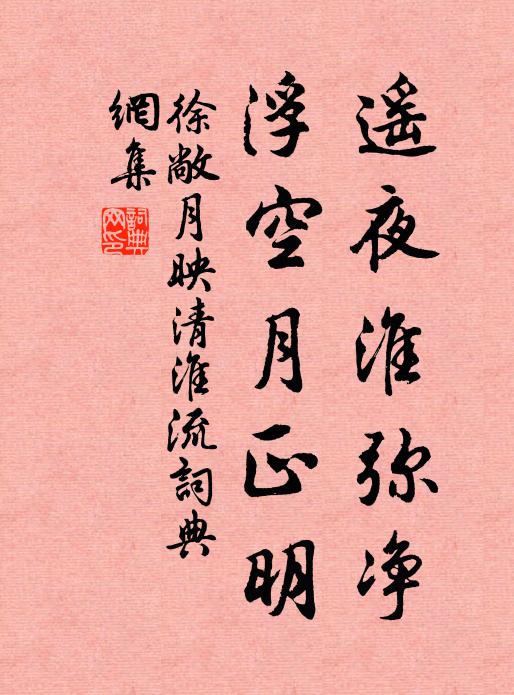 遥夜淮弥净
浮空月正明
徐敞月映清淮流詞典
網集
詞典
网印